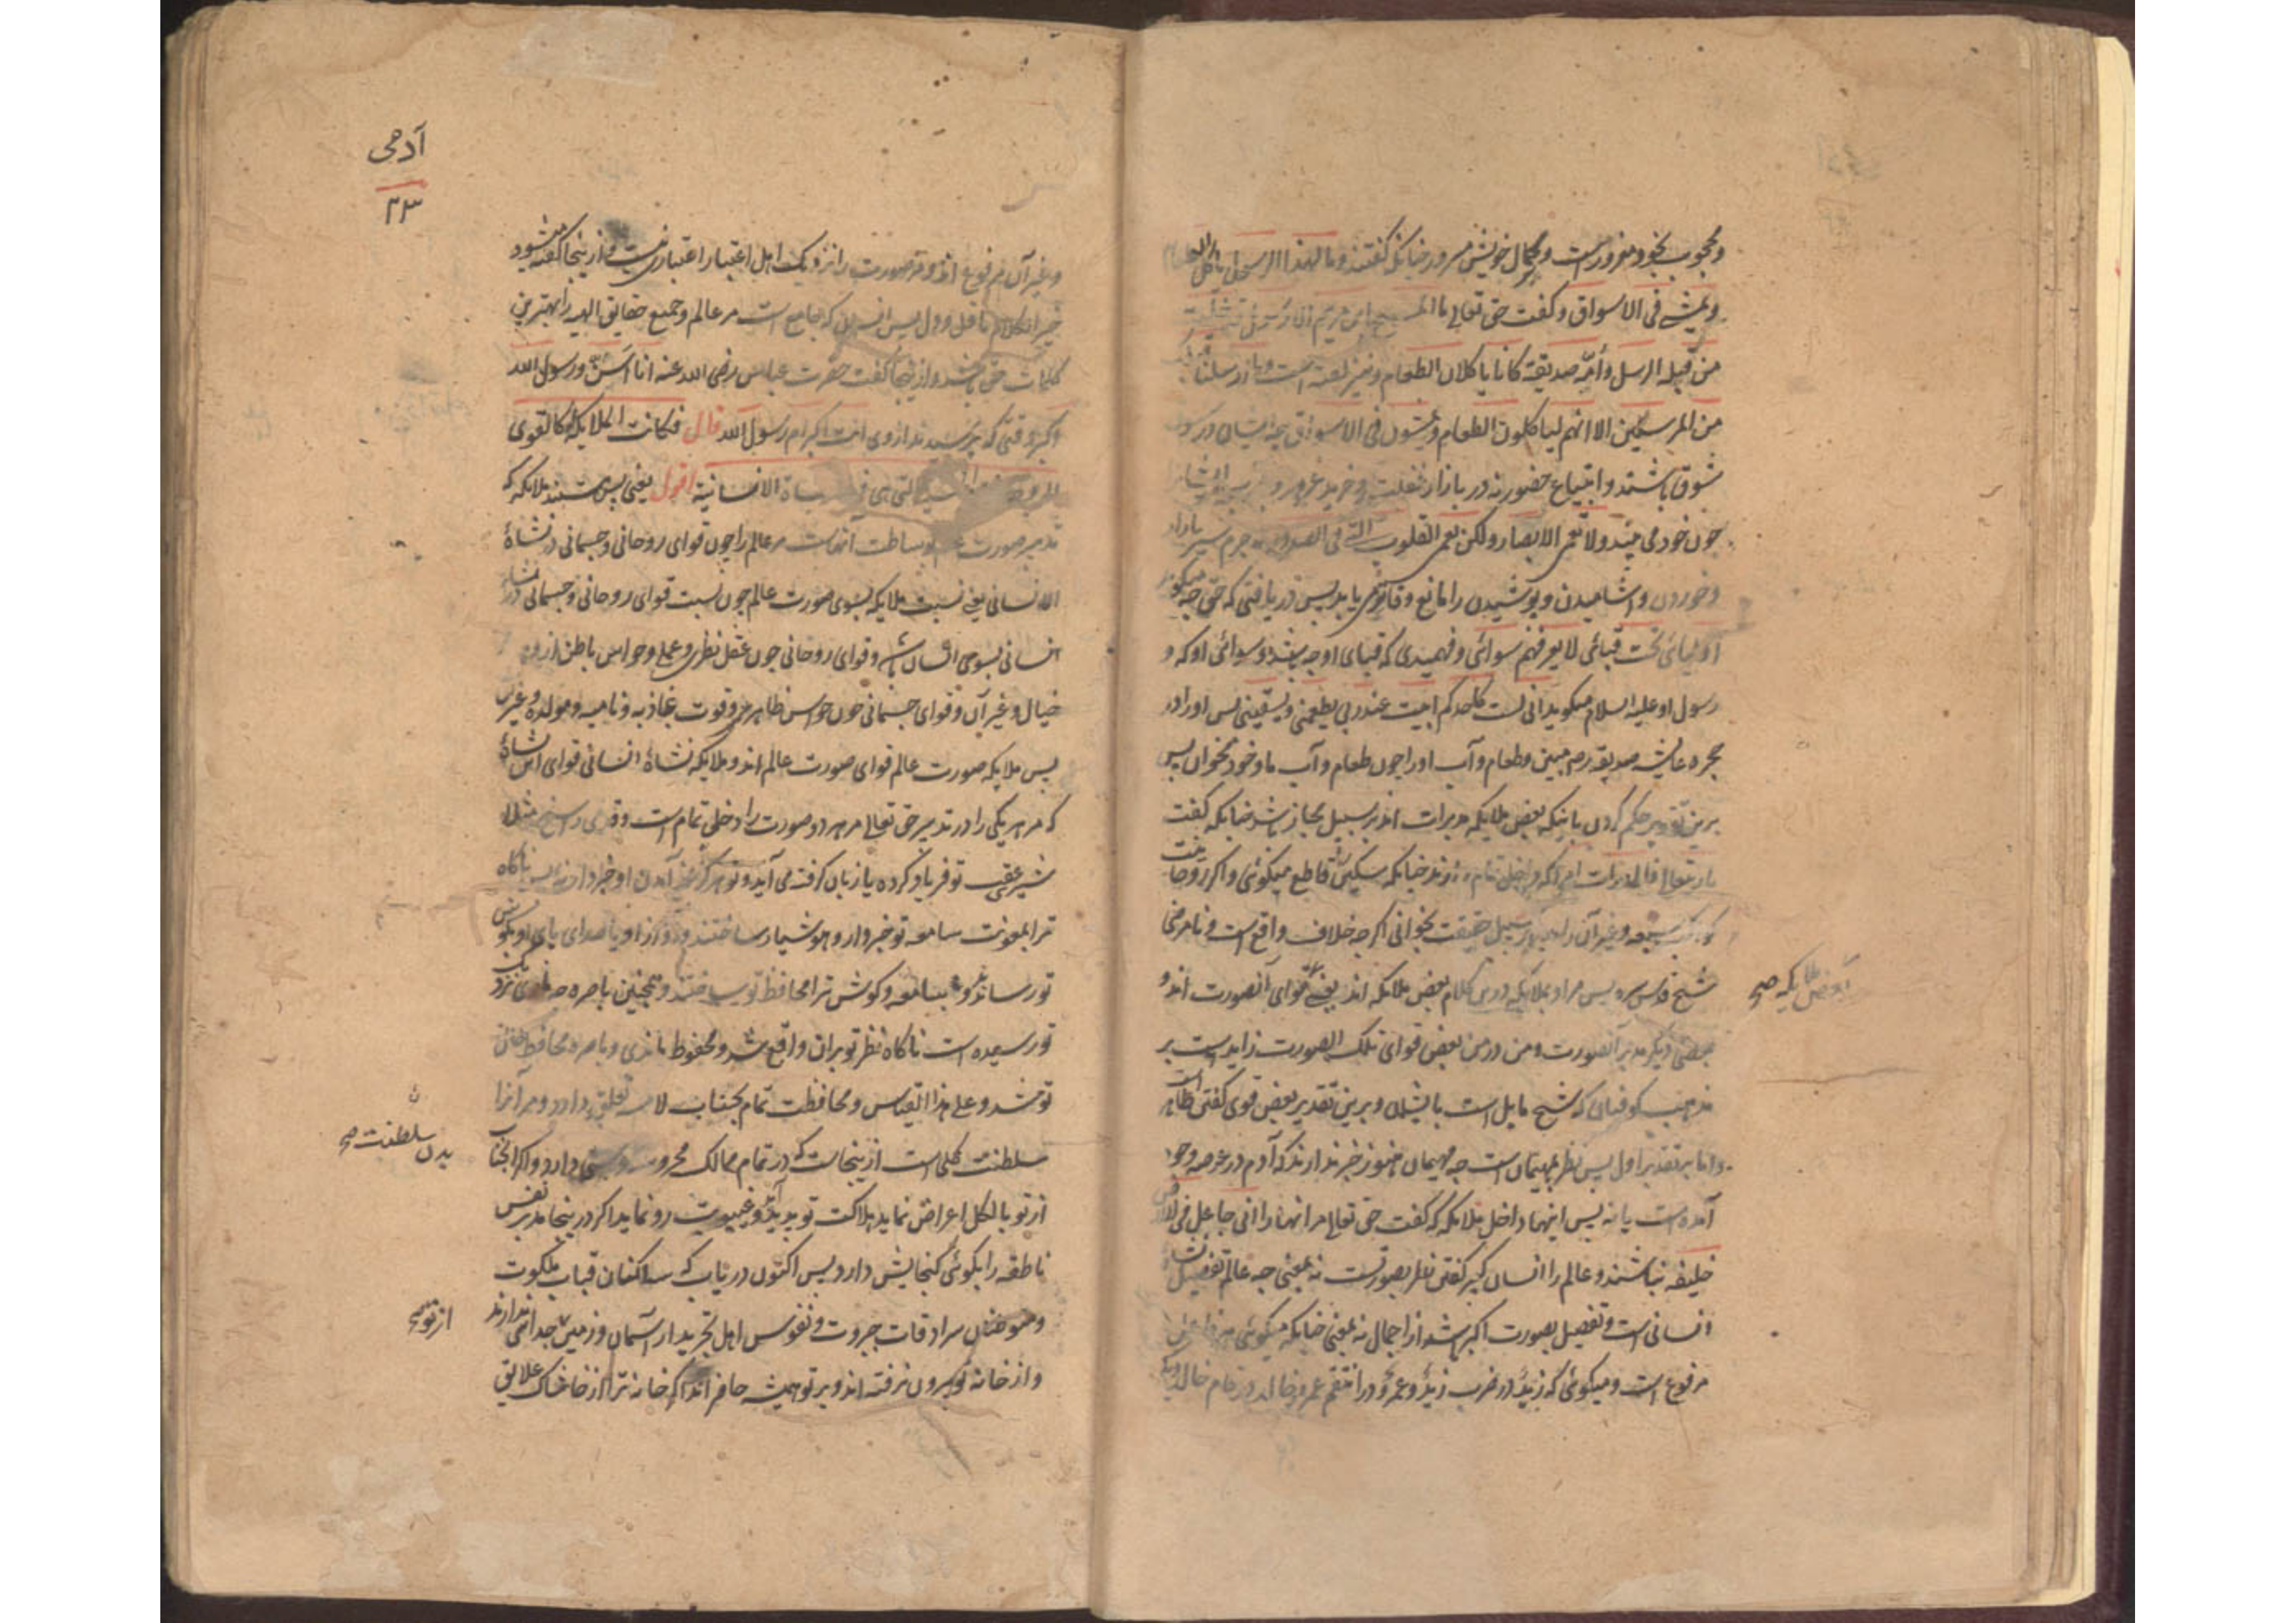 ومحجوب بخود مغرور است و بکمال خویش مسرور چنانکه گفتند و ما لهذا الرسول یاکل الطعام
ویمشی فی الاسواق وگفت حق تعالی ما المسیح ابن مریم الا رسول قد خلت
من قبله الرسل وأمه صدیقة کانا یاکلان الطعام ونیز گفته است وما ارسلنا قبلک
من المرسلین الا انهم لیاکلون الطعام ویمشون فی الاسواق
شوق باشند و ابتیاع حضور نه در بازار غفلت و خرید غرور و
چون خود می بیند ولا تعمی الابصار ولکن تعمی القلوب التی فی الصدور
وخوردن و اشامیدن و پوشیدن را مانع و قادح یابد پس دریافتی که حق چه میگوید
اولیائی تحت قبائی لا یعرفهم سوائی وفهمیدی که قبای او چه باشد و سوائی او که و
رسول او علیه السلام میگوید انی لست کاحدکم ابیت عند ربی یطعمنی ویسقینی پس او را در
حجره عایشه صدیقه رض مبین وطعام وآب او را چون طعام وآب ما وخود مخوان پس
برین تقدیر حکم کردن بانیکه بعض ملایکه مدبرات اند بر سبیل مجاز باشد چنانکه گفت
باریتعالی فالمدبرات امرا که دخل تمام دارند چنانکه سکین را قاطع میگوئی و اگر روحانیت
کواکب سبعه وغیر آن را مدبر بر سبیل حقیقت بخوانی اگرچه خلاف واقع است ونامرضی
شیخ قدس سره پس مراد بملایکه درین کلام بعض ملایکه اند یعنی بعض قوای آنصورت اند و
بعضی دیگر مدبر آنصورت ومن در من بعض قوای تلک الصورت زاید است بر
مذهب کوفیان که شیخ مایل است بایشان وبرین تقدیر بعض قوی گفتن ظاهر است
واما بر تقدیر اول پس نظر بمهیمان است چه مهیمان هنوز خبر ندارند که آدم در عرصه وجود
آمده است یا نه پس اینها داخل ملایکه که گفت حق تعالی مر انها را انی جاعل فی الارض
خلیفه نباشند وعالم را انسان کبیر گفتن نظر بصورتست نه بمعنی چه عالم تفصیل نشاة
انسانی است وتفصیل بصورت اکبر باشد از اجمال نه بمعنی چنانکه میگوئی
مرفوع است ومیگوئی که زید در ضرب زید وعمرو در انتقم عمرو وخالد در قام خالد
ملایکه صح
آدمی
۲۳
وغیر آن هم نوع اند وقد صورت را نزدیک اهل اعتبار اعتباری نیست و از ینجا گفته میشود
خیر الکلام ما قل ودل پس انسان که جامع است مر عالم وجمیع حقایق الهیه را بهترین
کلمات حق باشد و از ینجا گفت حضرت عباس رضی الله عنه انا اسن ورسول الله
اکبر وقتی که پرسیدند از وی انت اکبر ام رسول الله قال فکانت الملایکة له کالقوی
الروحانیة والحسیة التی هی فی النشاة الانسانیة اقول یعنی پس هستند ملایکه که
تدبیر صورت عالم بوساطت آنهاست مر عالم را چون قوای روحانی وجسمانی در نشاة
الانسانی یعنی نسبت ملایکه بسوی صورت عالم چون نسبت قوای روحانی وجسمانی در نشاة
انسانی بسوی انسان باشد و قوای روحانی چون عقل نظری وعملی وحواس باطن از وهم
خیال وغیر آن وقوای جسمانی چون حواس ظاهر وقوت جاذبه ونامیه ومولده وغیر آن
پس ملایکه صورت عالم قوای صورت عالم اند وملایکه نشاة انسانی قوای این نشاة
که هر یکی را در تدبیر حق تعالی مر هر دو صورت را دخلی تمام است وقدمی راسخ مثلا
شیر عقب تو فریاد کرده یا زبان گرفته می آید وتو هرگز از آمدن او خبر نداری پس ناگاه
ترا بمعونت سامعه تو خبردار وهوشیار ساختند وآواز او یا صدای پای او بگوش
تو رساندند وسامعه وگوش ترا محافظ تو ساختند وهمچنین باصره چیزی نزد
تو رسیده است ناگاه نظر تو بران واقع شد ومحفوظ ماندی وباصره محافظ خانه
تو شد وعلی هذا القیاس ومحافظت تمام بجناب لامسه تعلق دارد ومر آنرا
سلطنت کلی است ازینجاست که در تمام ممالک محروسه دارد واگر آنجناب
از تو بالکل اعراض نماید هلاکت تو پدید آید وغیبوبت رو نماید اگر در ینجا مدبر نفس
ناطقه را بگوئی گنجایش دارد پس اکنون دریاب که ساکنان قباب ملکوت
ومعتکفان سرادقات جبروت ونفوس اهل تجرید از آسمان وزمین جدائی ندارند
واز خانه تو بیرون نرفته اند وبر تو همیشه حاضر اند اگر خانه ترا از خاشاک علایق
بدن سلطنت صح
از تو صح